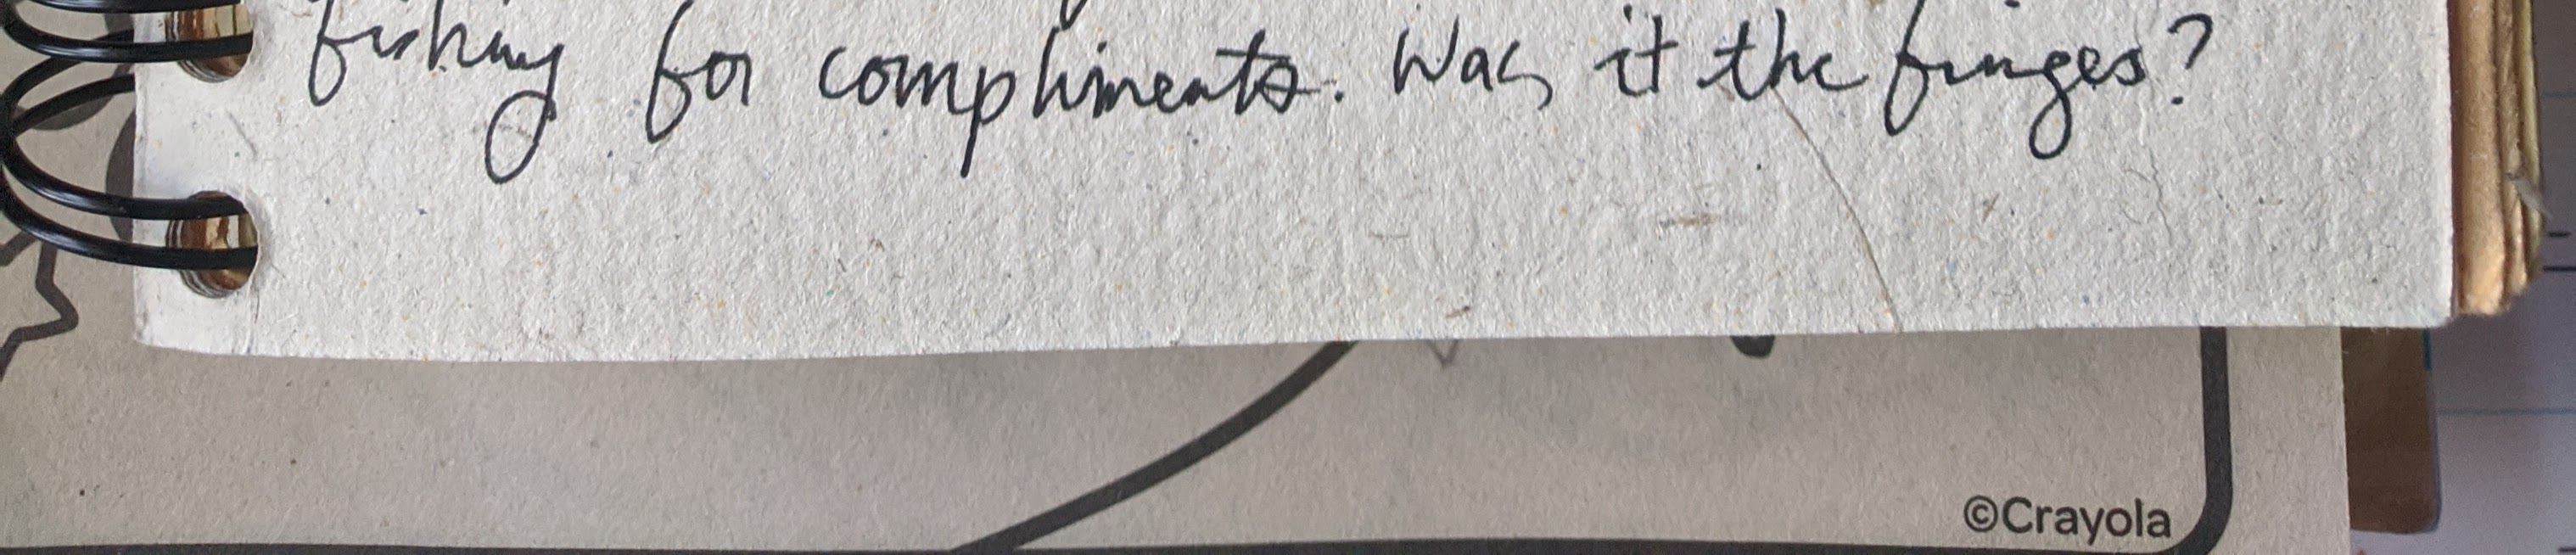 fishing for compliments. Was it the fringes?
©Crayola